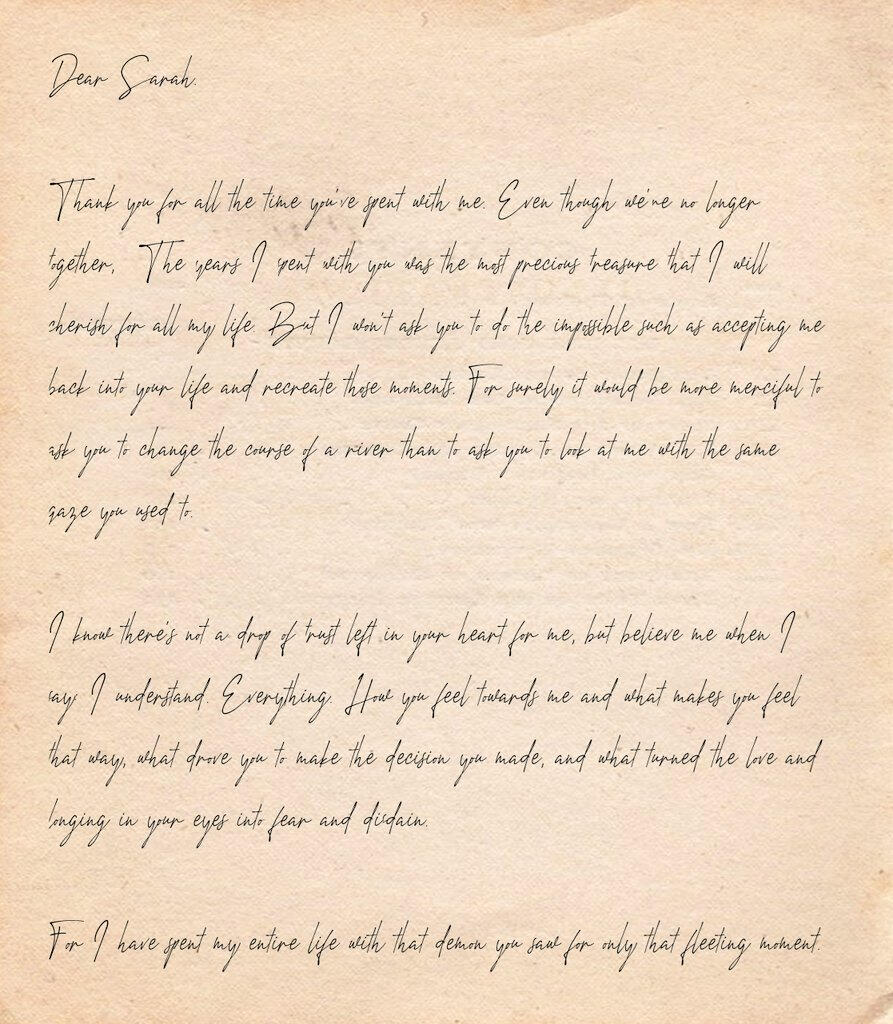 Dear Sarah.
Thank you for all the time you've spent with me. Even though we're no longer
together, The years I spent with you was the most precious treasure that I will
cherish for all my life. But I won't ask you to do the impossible such as accepting me
back into your life and recreate those moments. For surely it would be more merciful to
ask you to change the course of a river than to ask you to look at me with the same
gaze you used to.
I know there's not a drop of trust left in your heart for me, but believe me when I
say; I understand. Everything. How you feel towards me and what makes you feel
that way, what drove you to make the decision you made, and what turned the love and
longing in your eyes into fear and disdain.
For I have spent my entire life with that demon you saw for only that fleeting moment.